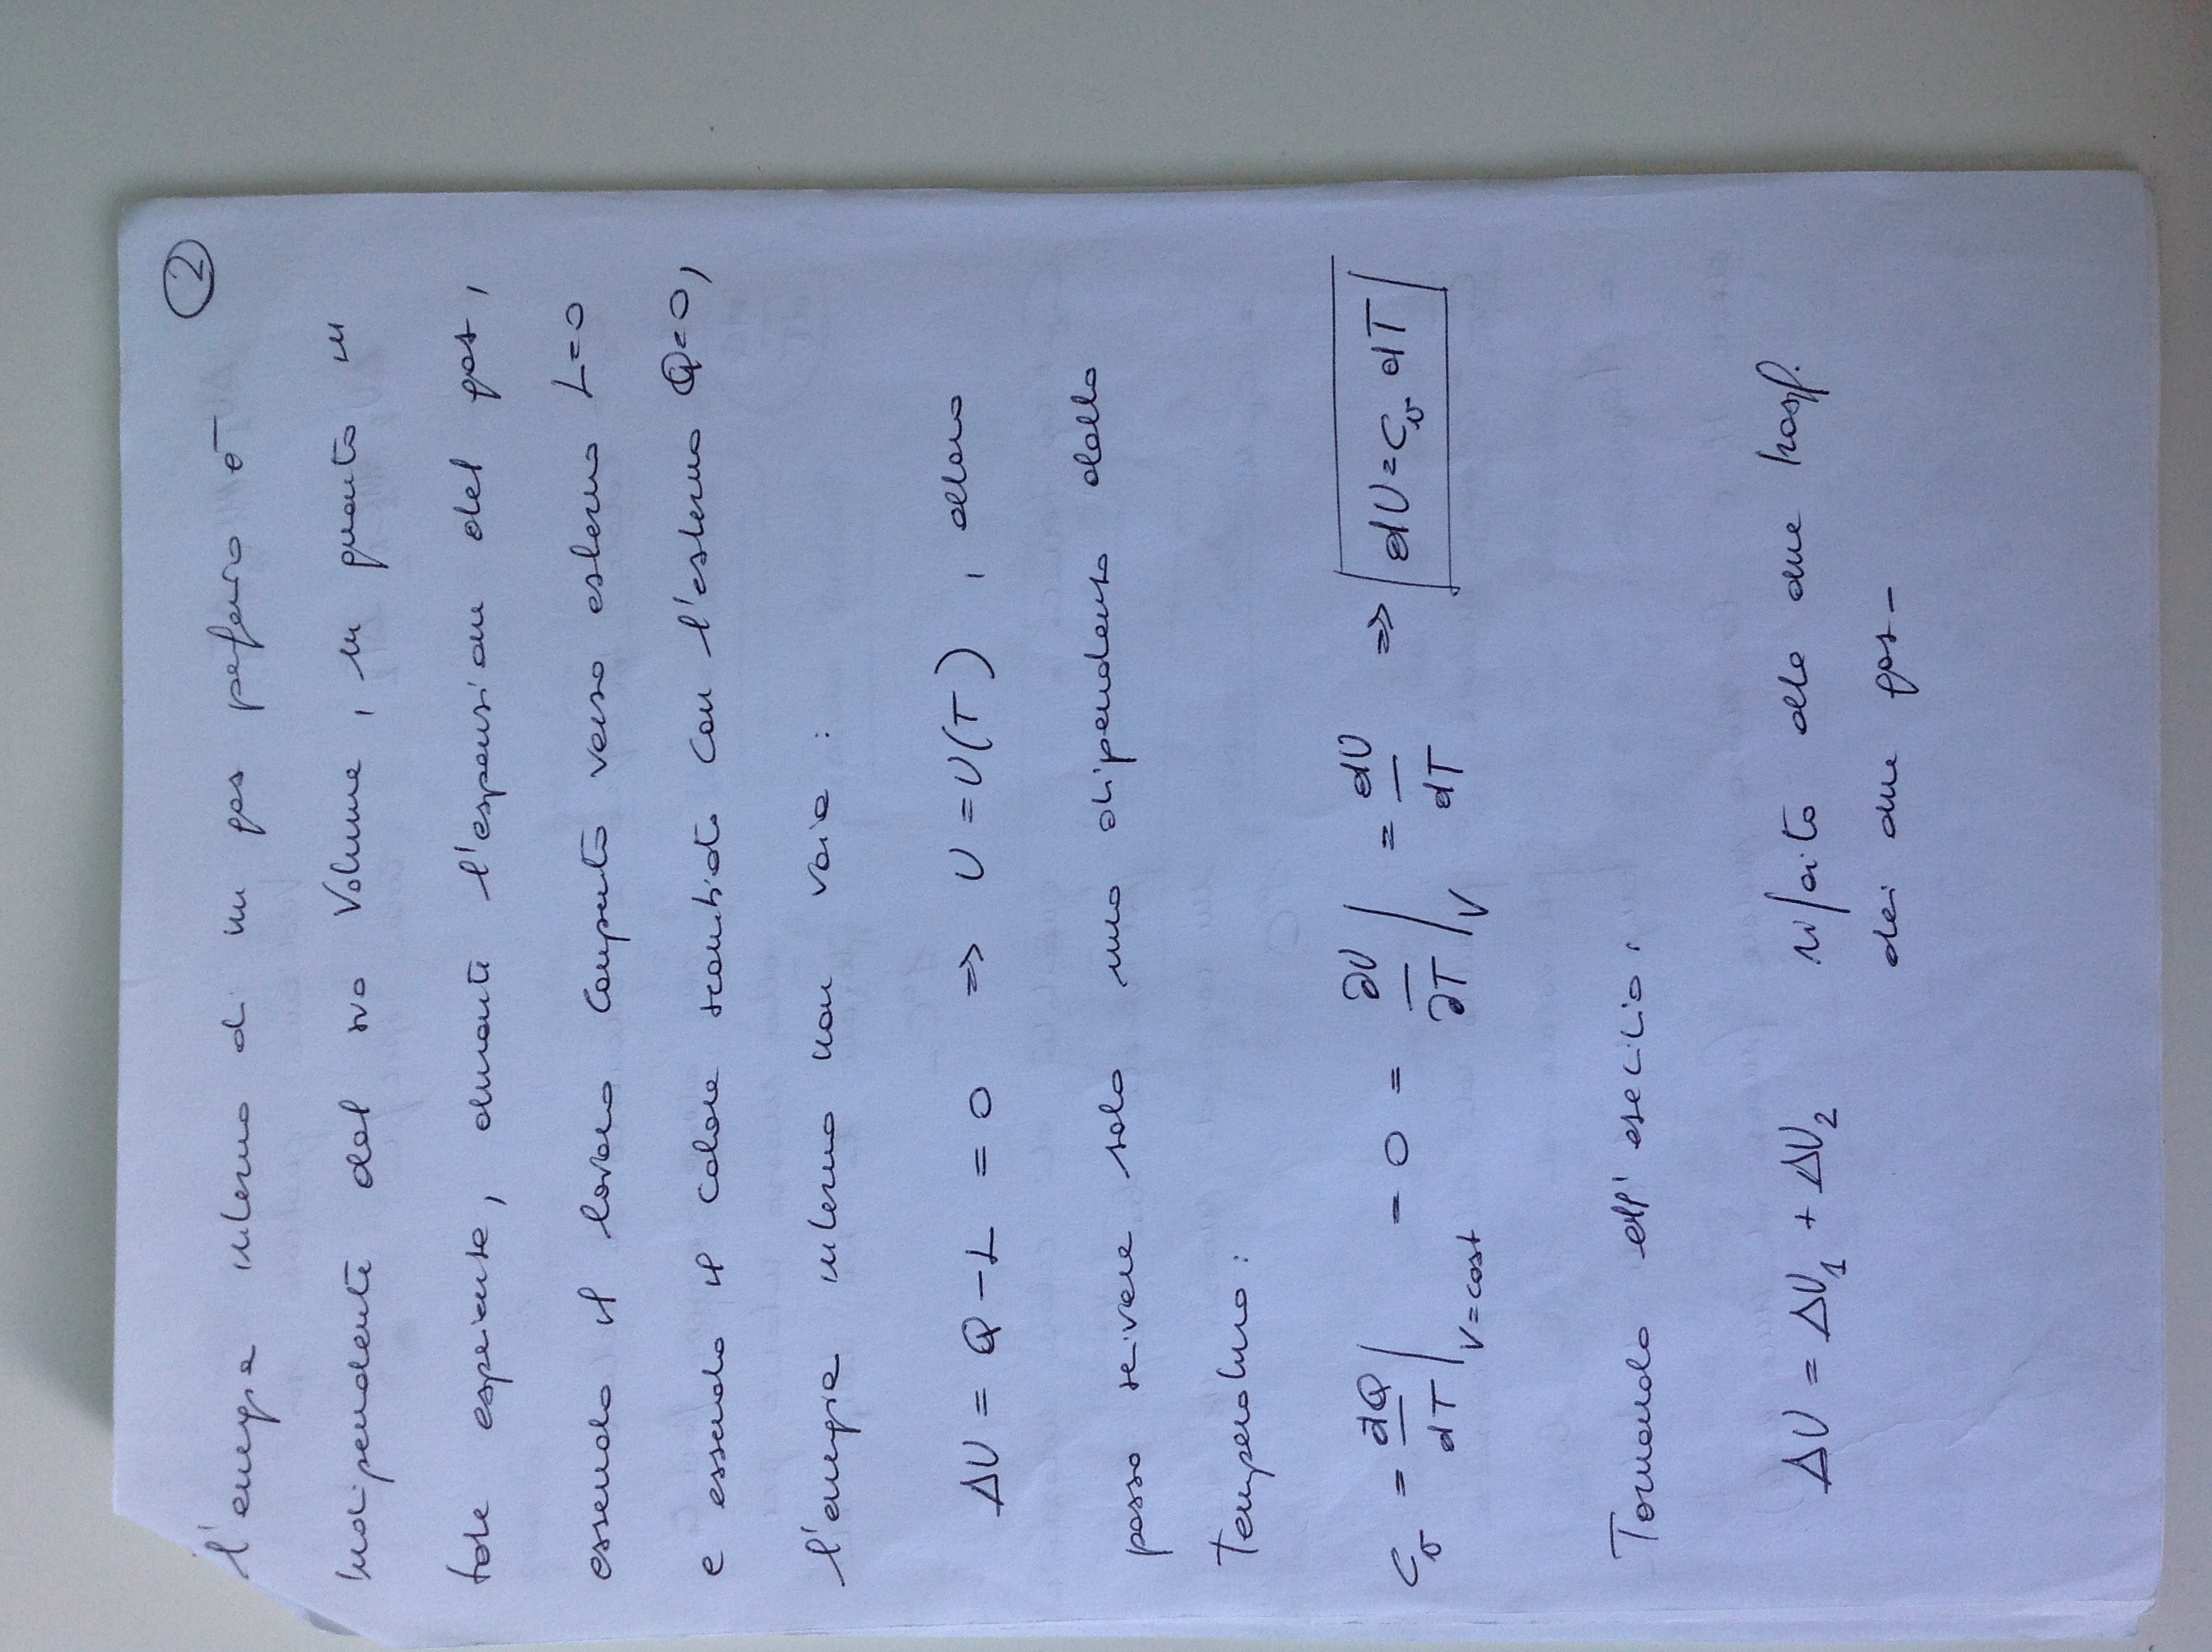 2
L'energia interna di un gas perfetto è
indipendente dal suo Volume, in quanto in
tale esperienza, durante l'espansione del gas,
essendo il lavoro compiuto verso esterno L=0
e essendo il calore scambiato con l'esterno Q=0,
l'energia interna non varia:
ΔU = Q - L = 0 => U = U(T), allora
posso scrivere solo una dipendenza dalla
Temperatura:
c_v = đQ/dT |_V=cost = 0 = ∂U/∂T |_V = dU/dT => dU = c_v dT
Tornando all'esercizio:
ΔU = ΔU₁ + ΔU₂ riferito alle due trasf.
dei due gas-